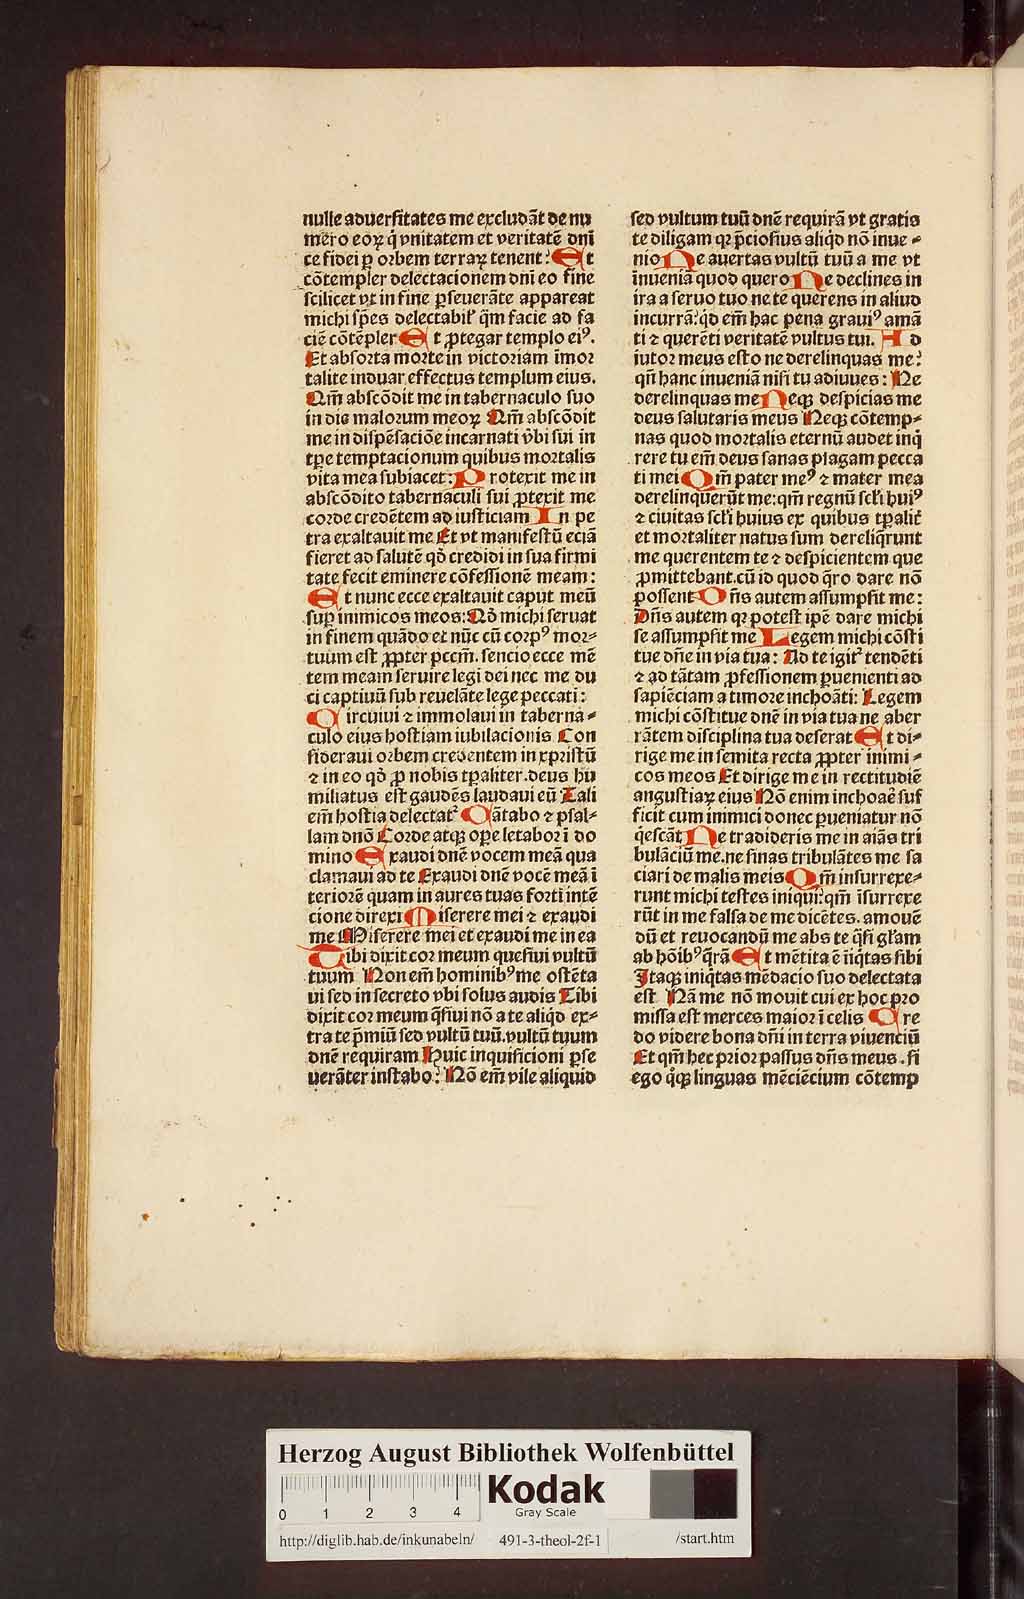 nulle aduersitates me excludāt de nu
mero eoꝝ q̇ vnitatem et veritatē dn̄i
ce fidei ꝑ orbem terraꝝ tenent: Et
cōtempler delectacionem dn̄i eo fine
scilicet vt in fine ꝑseuerāte appareat
michi spēs delectabilꝰ q̄m facie ad fa
ciē cōtēpler Et ꝓtegar templo eiꝰ.
Et absorta morte in victoriam īmor
talite induar effectus templum eius.
Qm̄ abscōdit me in tabernaculo suo
in die malorum meoꝝ Qm̄ abscōdit
me in dispēsaciōe incarnati v̄bi sui in
tp̄e temptacionum quibus mortalis
vita mea subiacet: Protexit me in
abscōdito tabernaculi sui ꝓtexit me
corde credētem ad iusticiam In pe
tra exaltauit me Et vt manifestū eciā
fieret ad salutē qd̄ credidi in sua firmi
tate fecit eminere cōfessionē meam:
Et nunc ecce exaltauit caput meū
suꝑ inimicos meos: Qd̄ michi seruat
in finem quādo et nūc cū corpꝰ mor⸗
tuum est ꝓpter pccm̄. sencio ecce mē
tem meam seruire legi dei nec me du
ci captiuū sub reuelāte lege peccati:
Circuiui ⁊ immolaui in taberna⸗
culo eius hostiam iubilacionis Con
sideraui orbem credentem in xpristū
⁊ in eo qd̄ ꝓ nobis tp̄aliter.deus hu
miliatus est gaudēs laudaui eū Tali
em̄ hostia delectatꝰ Cātabo ⁊ psal⸗
lam dnō Corde atqꝫ oꝑe letabor ī do
mino Exaudi dn̄e vocem meā qua
clamaui ad te Exaudi dn̄e vocē meā ī
teriorē quam in aures tuas forti intē
cione direxi Miserere mei ⁊ exaudi
me Miserere mei et exaudi me in ea
Tibi dixit cor meum quesiui vultū
tuum Non em̄ hominibꝰ me ostēta
ui sed in secreto vbi solus audis Tibi
dixit cor meum q̄siui nō a te aliqd̄ ex⸗
tra te p̄miū sed vultū tuū.vultū tuum
dn̄e requiram Huic inquisicioni ꝑse
uerāter instabo: Nō em̄ vile aliquid
sed vultum tuū dn̄e requirā vt gratis
te diligam qꝫ p̄ciosius aliqd̄ nō inue⸗
nio Ne auertas vultū tuū a me vt
īnueniā quod quero Ne declines in
ira a seruo tuo ne te querens in aliud
incurrā: qd̄ em̄ hac pena grauiꝰ amā
ti ⁊ querēti veritatē vultus tui. Ad
iutor meus esto ne derelinquas me:
qn̄ hanc inueniā nisi tu adiuues: Ne
derelinquas me Neqꝫ despicias me
deus salutaris meus Neqꝫ cōtemp⸗
nas quod mortalis eternū audet inq̇
rere tu em̄ deus sanas plagam pecca
ti mei Qm̄ pater meꝰ ⁊ mater mea
derelinquerūt me: qm̄ regnū scl̄i huiꝰ
⁊ ciuitas scl̄i huius ex quibus tp̄alit̄
et mortaliter natus sum dereliq̄runt
me querentem te ⁊ despicientem que
ꝓmittebant.cū id quod q̄ro dare nō
possent Dn̄s autem assumpsit me:
Dn̄s autem qꝫ potest ip̄e dare michi
se assumpsit me Legem michi cōsti
tue dn̄e in via tua: Ad te igitꝰ tendēti
⁊ ad tātam ꝓfessionem ꝑuenienti ad
sapiēciam a timore inchoāti: Legem
michi cōstitue dn̄e in via tua ne aber
rātem disciplina tua deserat Et di⸗
rige me in semita recta ꝓpter inimi⸗
cos meos Et dirige me in rectitudiē
angustiaꝝ eius Nō enim inchoaē suf
ficit cum inimici donec ꝑueniatur nō
qescāt Ne tradideris me in aīās tri
bulāciū me.ne sinas tribulātes me sa
ciari de malis meis Qm̄ insurrexe⸗
runt michi testes iniqui: qm̄ īsurrexe
rūt in me falsa de me dicētes. amouē
dū et reuocandū me abs te q̄si gl̄am
ab hōibꝰ q̄rā Et mētita ē īiq̇tas sibi
Itaqꝫ iniq̇tas mēdacio suo delectata
est Nā me nō mouit cui ex hoc pro
missa est merces maior ī celis Cre
do videre bona dn̄i in terra viuenciū
Et qm̄ hec prior passus dn̄s meus.si
ego q̊qꝫ linguas mēciēcium cōtemp
Herzog August Bibliothek Wolfenbüttel
0 1 2 3 4
Kodak
Gray Scale
http://diglib.hab.de/inkunabeln/ 491-3-theol-2f-1 /start.htm